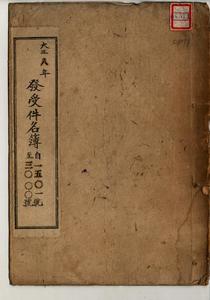 大正八年
發受件名簿
自一五〇一號
至三〇〇〇號